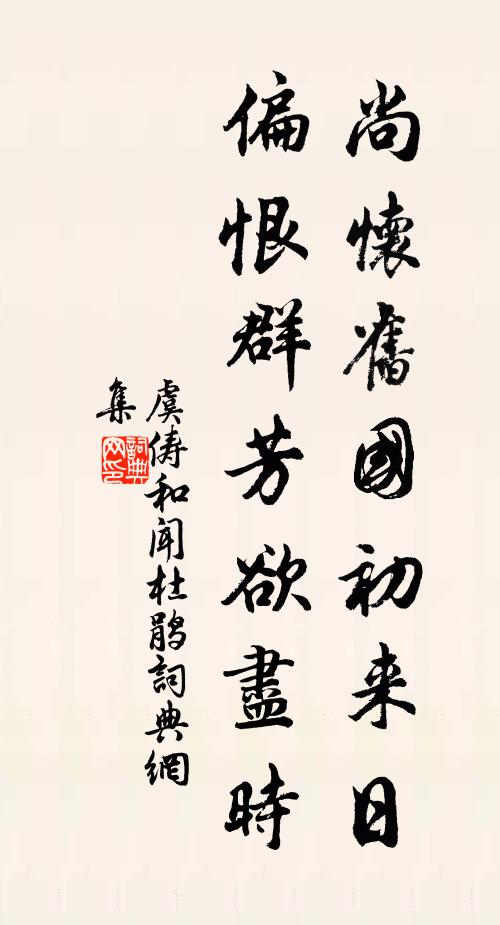 尚懷舊國初来日
偏恨群芳欲盡時
虞俦和闻杜鹃詞典網
集
詞典网印